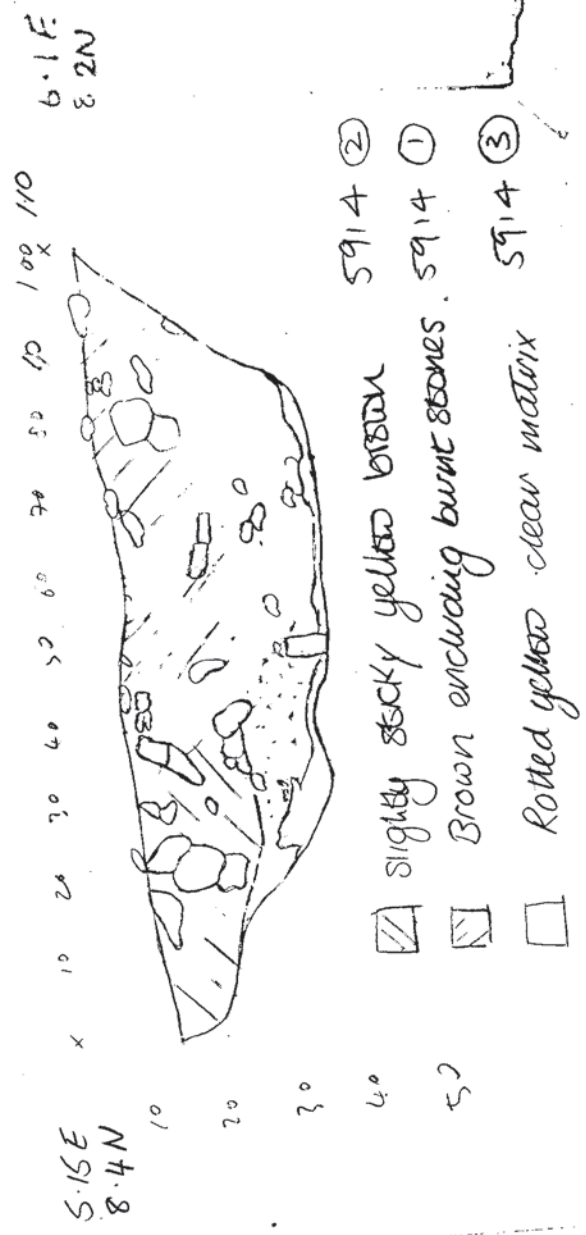 5.15E
8.4N
6.1E
8.2N
x 10 20 30 40 50 60 70 80 90 100 110
x
10
20
30
40
50
slightly sticky yellow brown 5914 ②
Brown enclosing burnt stones. 5914 ①
Rotted yellow clean matrix 5914 ③